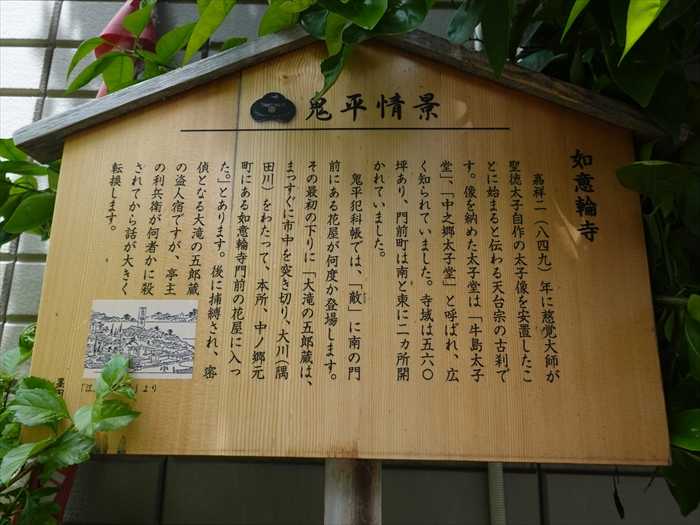 鬼平情景
如意輪寺
嘉祥二(八四九)年に慈覚大師が
聖徳太子自作の太子像を安置したこ
とに始まると伝わる天台宗の古刹で
す。像を納めた太子堂は「牛島太子
堂」、「中之郷太子堂」と呼ばれ、広
く知られていました。寺域は五六〇
坪あり、門前町は南と東に二ヵ所開
かれていました。
鬼平犯科帳では、「敵」に南の門
前にある花屋が何度か登場します。
その最初の下りに「大滝の五郎蔵は、
まっすぐに市中を突き切り、大川(隅
田川)をわたって、本所、中ノ郷元
町にある如意輪寺門前の花屋に入っ
た。とあります。後に捕縛され、密
偵となる大滝の五郎蔵
の盗人宿ですが、亭主
の利兵衛が何者かに殺
されてから話が大きく
転換します。
より